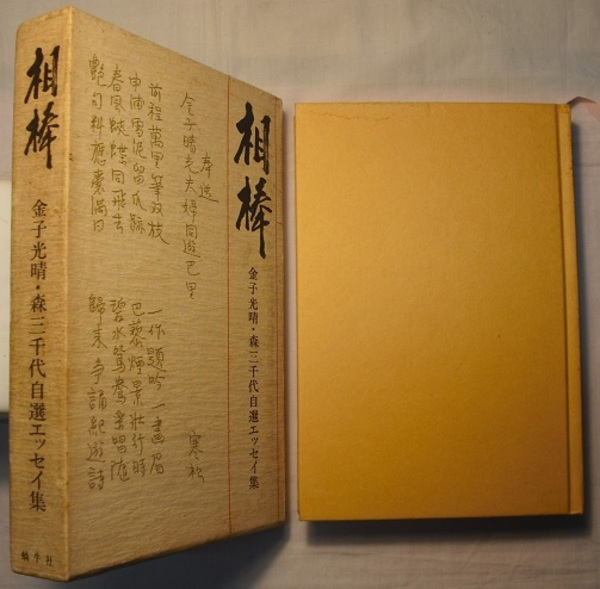 相棒
金子光晴・森三千代自選エッセイ集
蝸牛社
相棒
金子光晴・森三千代自選エッセイ集
奉送
金子晴光夫婦同遊巴里
寒松
前程萬里筆双枝 一作題吟一畫眉
申浦雪泥留爪跡 巴黎煙景壯行時
春風蛺蝶同飛去 碧水鴛鴦唱随
艶句料應嚢満日 歸来争誦紀遊詩